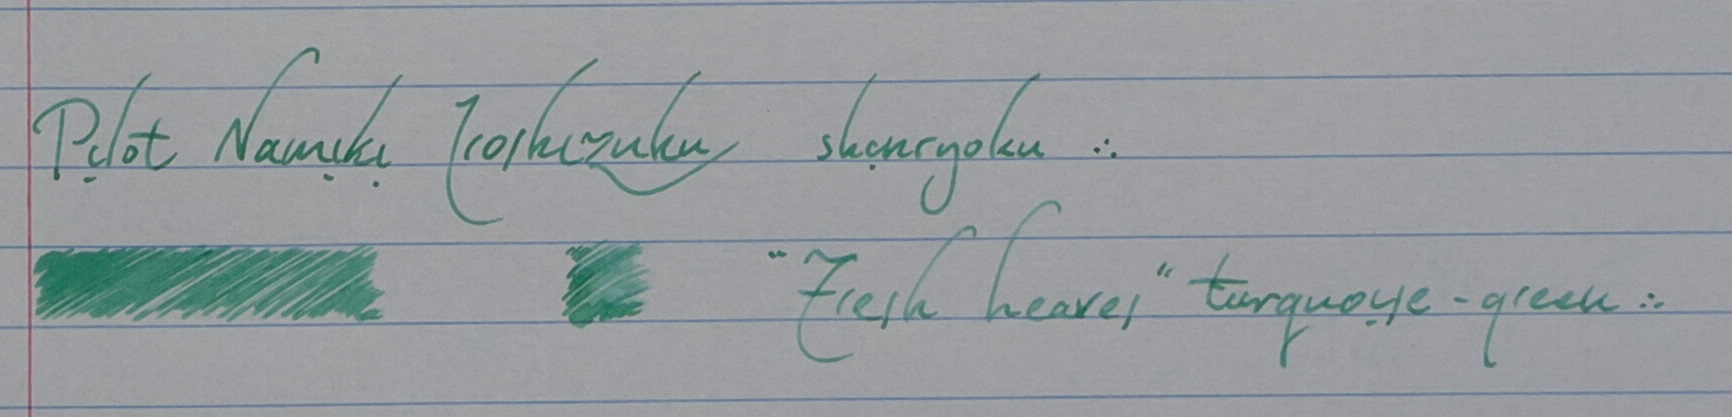 Pilot Namiki Iroshizuku shinryoku ∴
"Fresh heaves" turquoise-green ∴